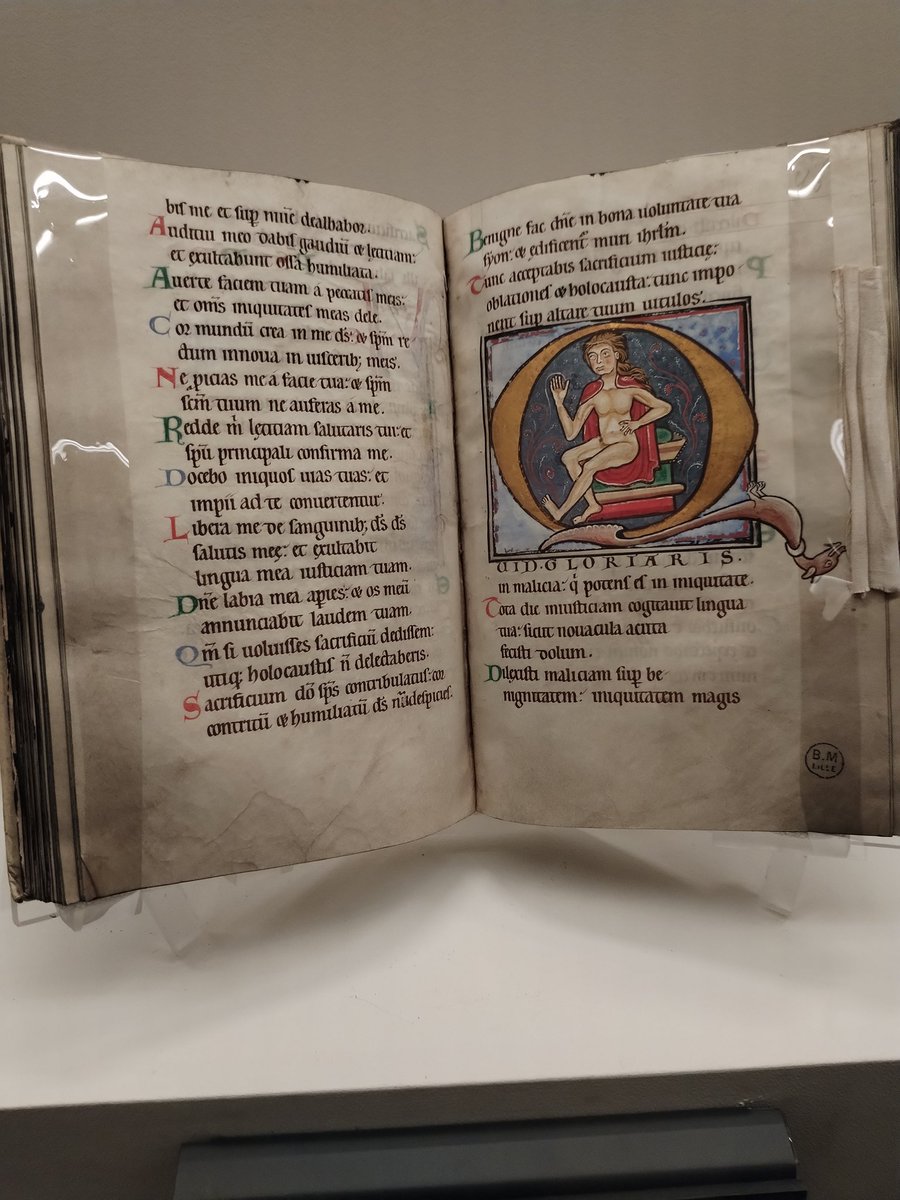 bis me et sup niuē dealbabor.
Auditui meo dabis gaudiū & lętitiam:
et exultabunt ossa humiliata.
Auerte faciem tuam a peccatis meis:
et om̄s iniquitates meas dele.
Cor mundū crea in me ds̄: & sp̄m re
ctum innoua in uisceribꝫ meis.
Ne picias me a facie tua: & sp̄m
sc̄m tuum ne auferas a me.
Redde m̄ lętitiam salutaris tui: et
sp̄u principali confirma me.
Docebo iniquos uias tuas: et
impii ad te conuertentur.
Libera me de sanguinibꝫ ds̄ ds̄
salutis meę: et exultabit
lingua mea iusticiam tuam.
Dn̄e labia mea apies: & os meū
annunciabit laudem tuam.
Qm̄ si uoluisses sacrificiū dedissem:
utiqꝫ holocaustis n̄ delectaberis.
Sacrificium dō sp̄s contribulatus: cor
contritū & humiliatū ds̄ n̄ despicies.
Benigne fac dn̄e in bona uoluntate tua
syon: & edificent muri ihrl̄m.
Tunc acceptabis sacrificium iusticię:
oblationes & holocausta: tunc impo-
nent sup altare tuum uitulos.
QUID GLORIARIS.
in malicia: q̇ potens es in iniquitate.
Tota die iniusticiam cogitauit lingua
tua: sicut nouacula acuta
fecisti dolum.
Dilexisti maliciam sup be
nignitatem: iniquitatem magis
B.M
LILLE